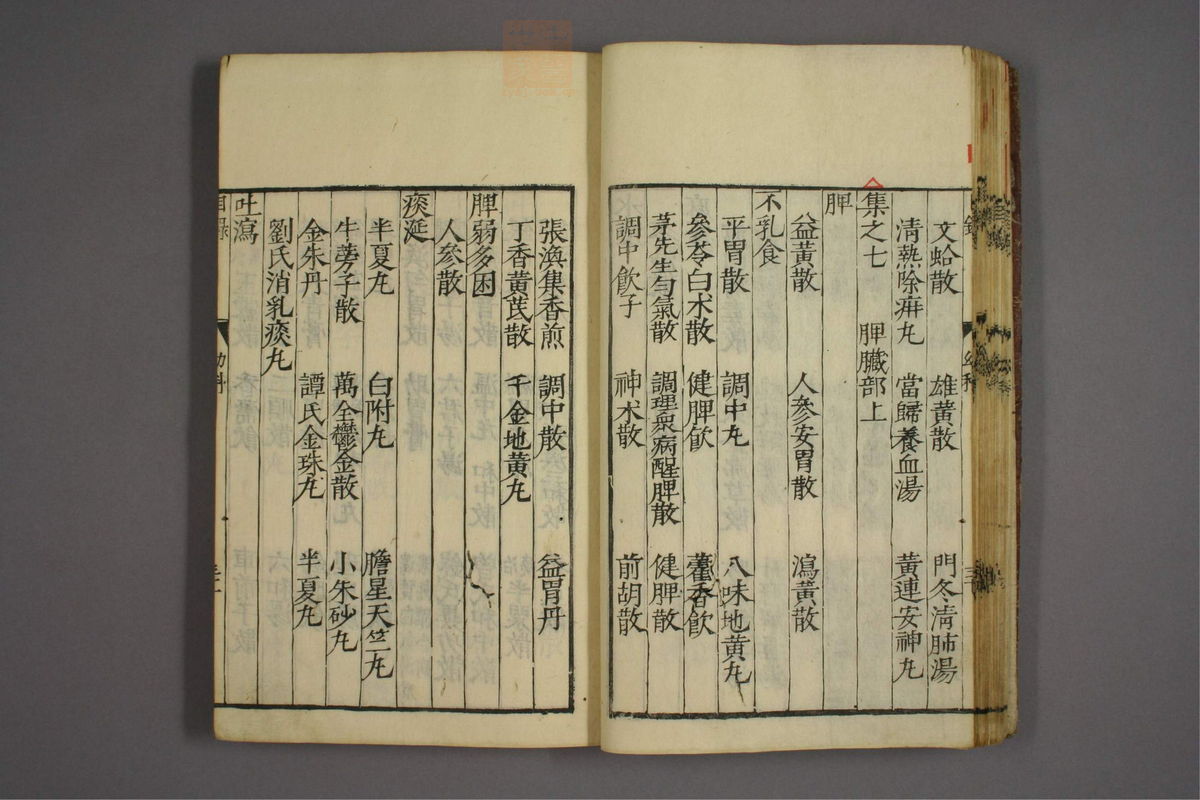 文蛤散 雄黃散 門冬清肺湯
清熱除疳丸 當歸養血湯 黃連安神丸
集之七 脾臟部上
脾
益黃散 人參安胃散 瀉黃散
不乳食
平胃散 調中丸 八味地黃丸
參苓白朮散 健脾飲 藿香飲
茅先生勻氣散 調理衆病醒脾散 健脾散
調中飲子 神朮散 前胡散
張渙集香煎 調中散 益胃丹
丁香黃芪散 千金地黃丸
脾弱多困
人參散
痰涎
半夏丸 白附丸 膽星天竺丸
牛蒡子散 萬全鬱金散 小朱砂丸
金朱丹 譚氏金珠丸 半夏丸
劉氏消乳痰丸
吐瀉
目錄 幼科